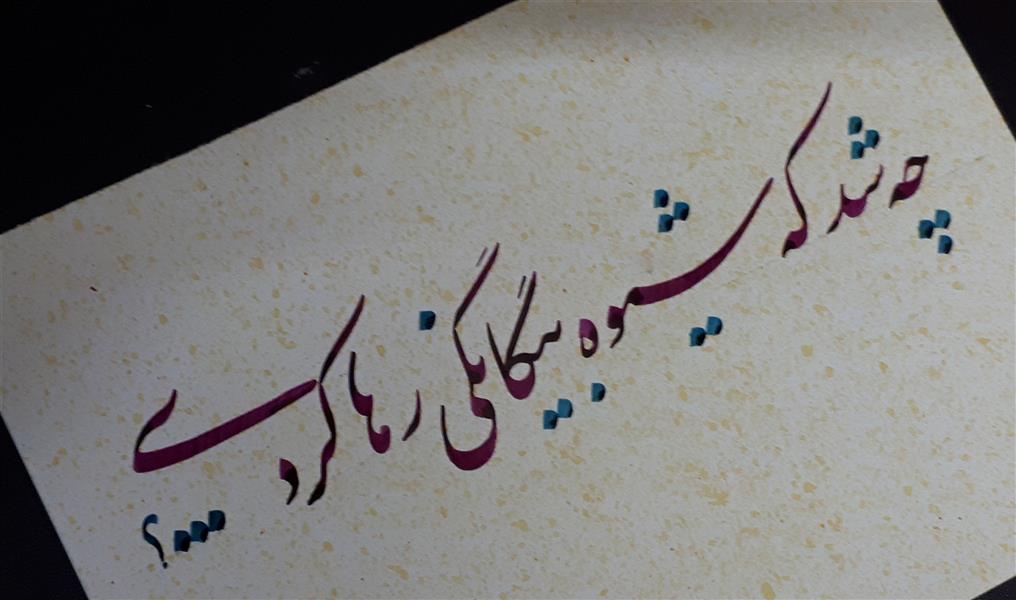 چه شد که شیوه بیگانگی رها کردی ...؟